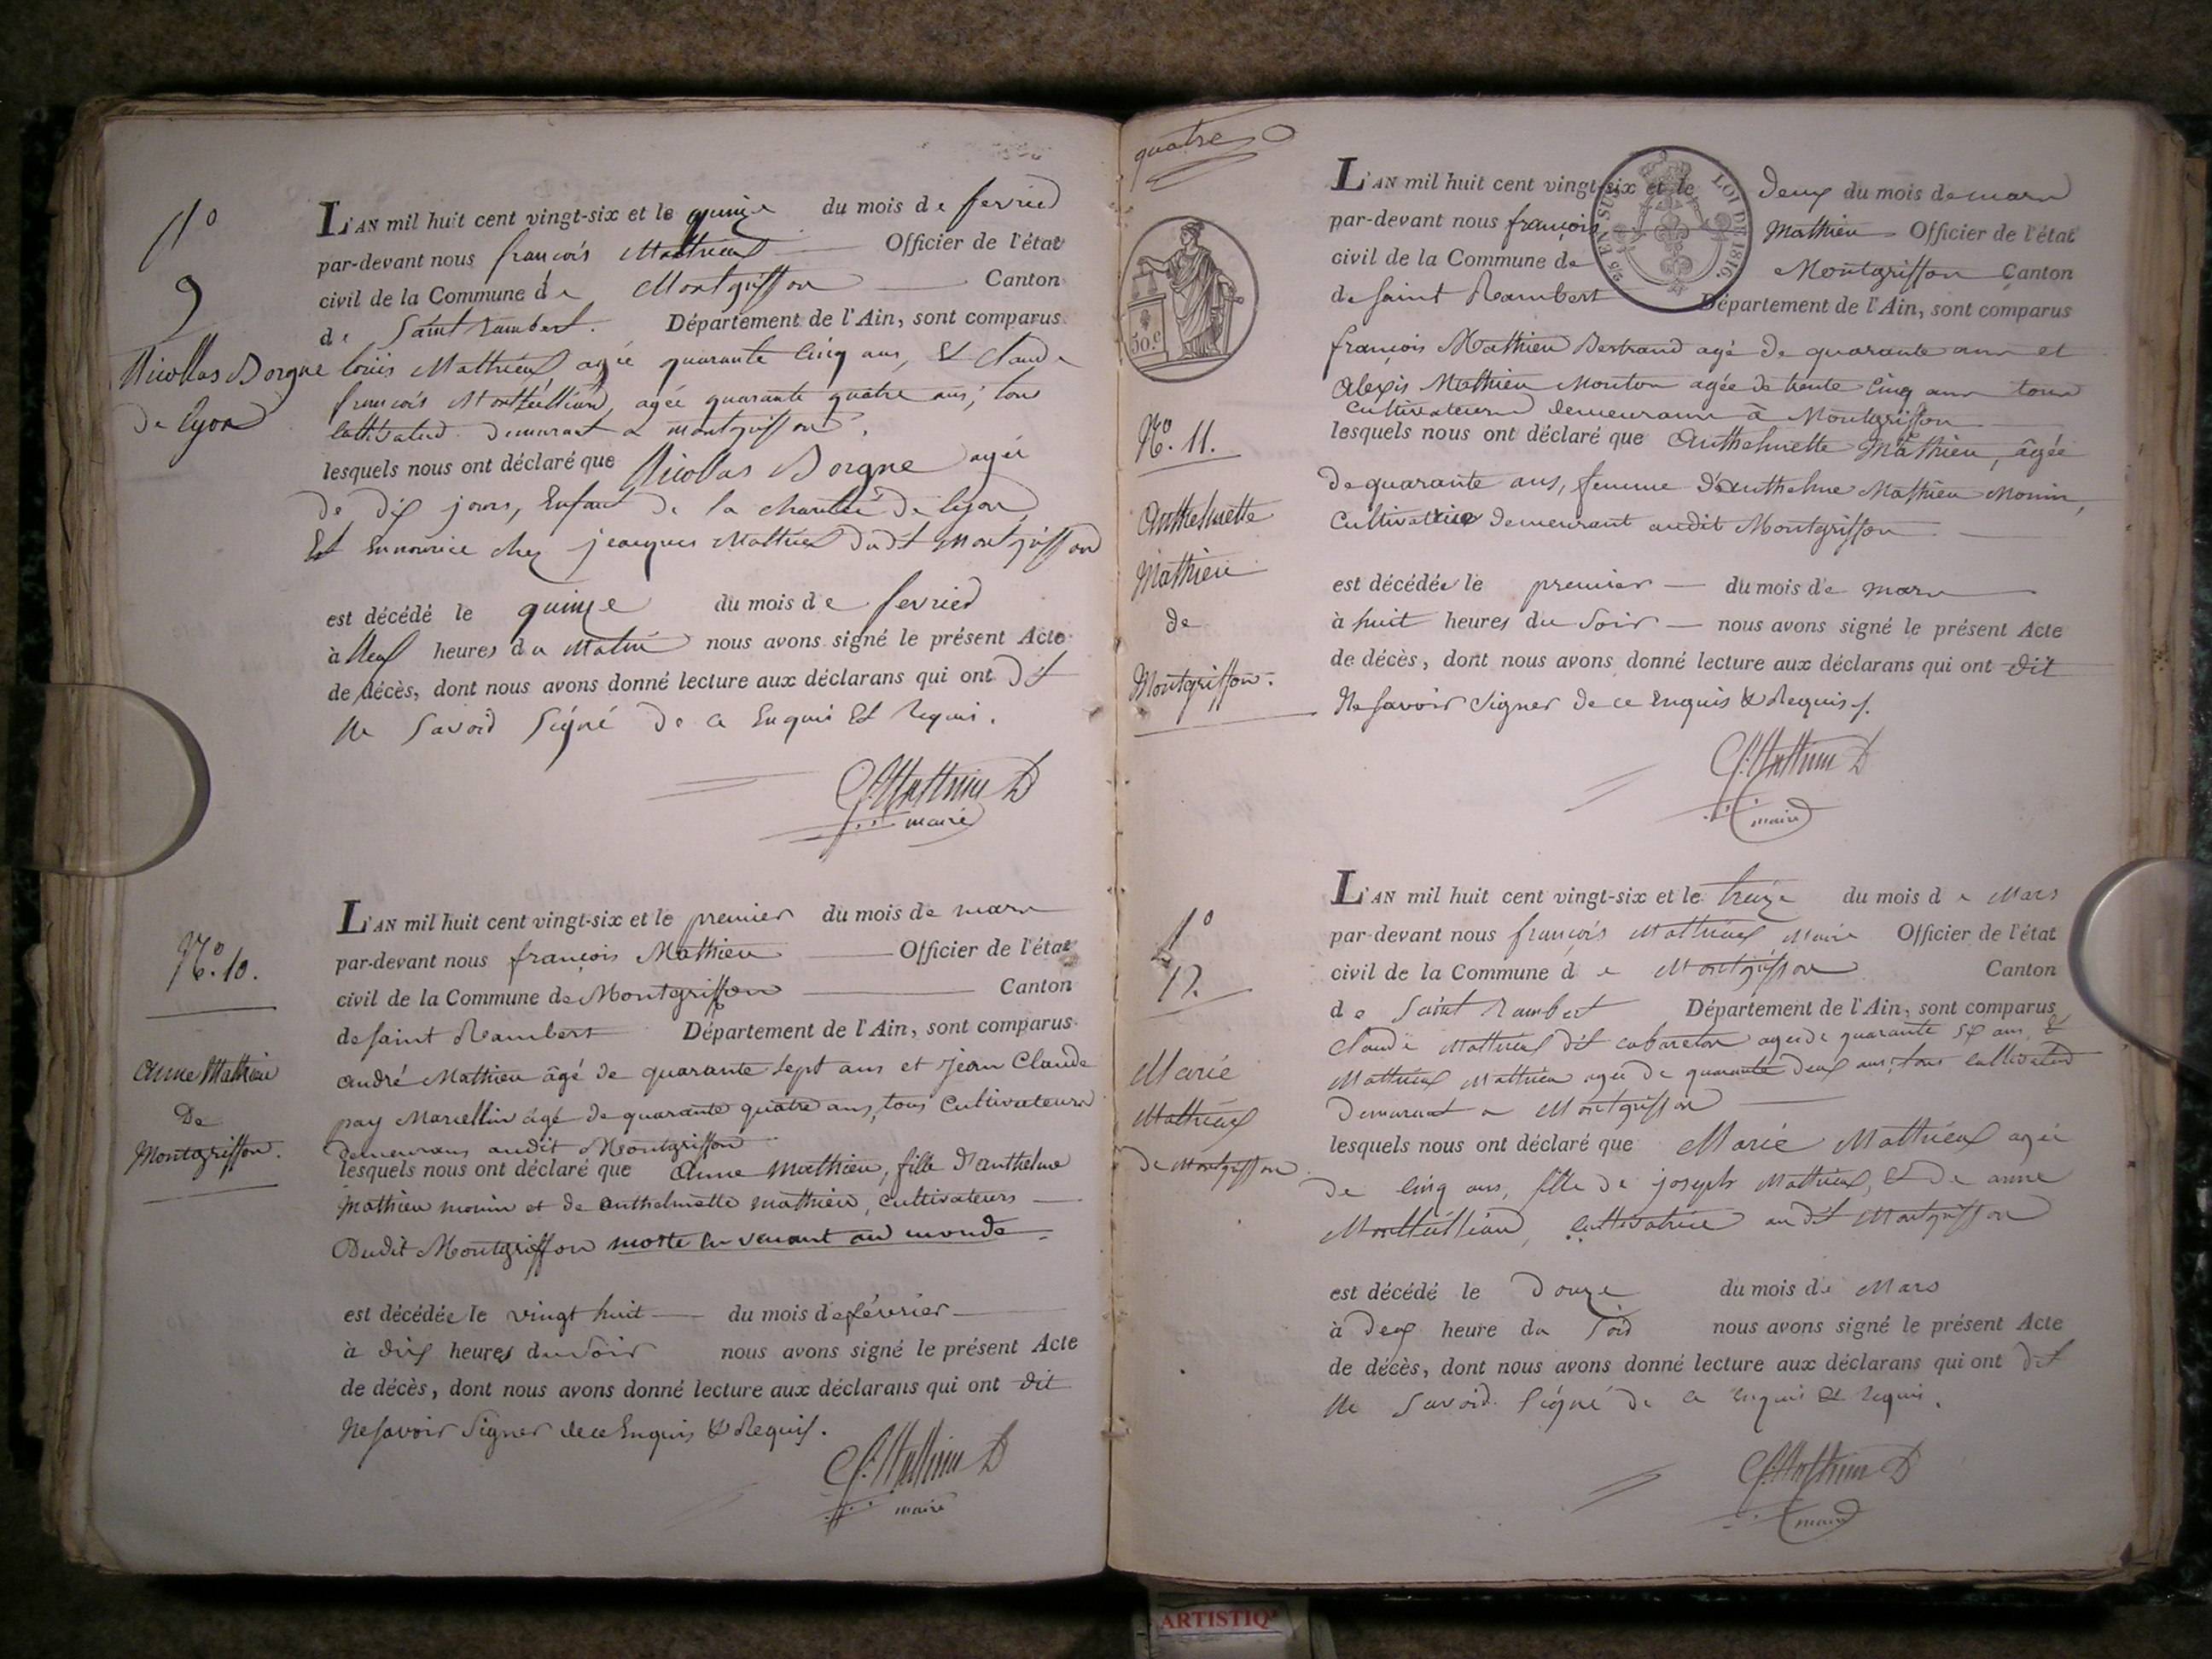 N°
9
Nicollas Borgne
de lyon
L'AN mil huit cent vingt-six et le quinze du mois de fevried
par-devant nous francois Mathieu Officier de l'état
civil de la Commune de Montgriffon Canton
de Saint rambert. Département de l'Ain, sont comparus
louis Mathieu, agée quarante cinq ans, Et claude
francois, agée quarante quatre ans; tous
demurant a montgriffon,
lesquels nous ont déclaré que Nicollas Borgne agée
de dix jours, Enfant de la charité de lyon
Et Ennourice chez jeacques Mathieu dudit Montgriffon
est décédé le quinze du mois de fevried
à Neuf heures du Matin nous avons signé le présent Acte
de décès, dont nous avons donné lecture aux déclarans qui ont dit
Ne Savoid Signé de ce Enquis Et Requis.
f. Mathieu D
maire
N°. 10.
Anne Mathieu
De
Montgriffon.
L'AN mil huit cent vingt-six et le premier du mois de mars
par-devant nous françois Mathieu Officier de l'état
civil de la Commune de Montgriffon Canton
de saint Rambert Département de l'Ain, sont comparus
andré Mathieu âgé de quarante sept ans et jean Claude
pay Marcellin âgé de quarante quatre ans, tous Cultivateurs
demeurans audit Montgriffon
lesquels nous ont déclaré que Anne Mathieu, fille d'anthelme
Mathieu monin et de anthelmette mathieu, cultivateurs
Dudit Montgriffon morte en venant au monde
est décédée le vingt huit du mois de février
à dix heures du Soir nous avons signé le présent Acte
de décès, dont nous avons donné lecture aux déclarans qui ont dit
Ne savoir Signer de ce Enquis & Requis.
f. Mathieu D
maire
quatre
50.c
LOI DE 1816.
EN SUS
L'AN mil huit cent vingt-six et le deux du mois de mars
par-devant nous françois Mathieu Officier de l'état
civil de la Commune de Montgriffon Canton
de saint Rambert Département de l'Ain, sont comparus
françois Mathieu Bertrand agé de quarante ans et
Alexis Mathieu Mouton agée de trente Cinq ans tous
Cultivateurs demeurans à Montgriffon
N°. 11.
Anthelmette
Mathieu
de
Montgriffon.
lesquels nous ont déclaré que Anthelmette Mathieu, âgée
de quarante ans, femme d'Anthelme Mathieu Monin,
Cultivatrice demeurant audit Montgriffon
est décédée le premier du mois de mars
à huit heures du Soir nous avons signé le présent Acte
de décès, dont nous avons donné lecture aux déclarans qui ont dit
Ne savoir Signer de ce Enquis & Requis.
f. Mathieu D
maire
N°
12.
Marié
Mathieu
de Montgriffon
L'AN mil huit cent vingt-six et le treize du mois de Mars
par-devant nous françois Mathieu Maire Officier de l'état
civil de la Commune de Montgriffon Canton
de Saint Rambert Département de l'Ain, sont comparus
Claude Mathieu dit cabareton agée de quarante six ans, &
Mathieu Mathieu agée de quarante deux ans; tous cultivated
Demurant a Montgriffon
lesquels nous ont déclaré que Marié Mathieu agée
de Cinq ans, fille de joseph Mathieu, Et de anne
cultivatrice audit Montgriffon
est décédé le Douze du mois de Mars
à Deux heure du Soid nous avons signé le présent Acte
de décès, dont nous avons donné lecture aux déclarans qui ont dit
Ne Savoid Signé de ce Enquis Et requis.
f. Mathieu D
maire
ARTISTIQ